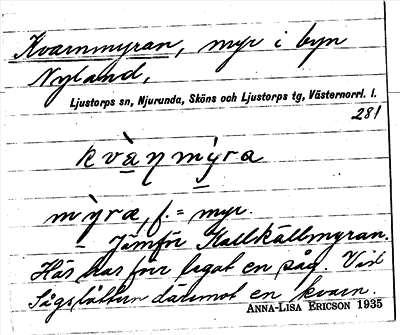 Kvarnmyran, myr i byn
Nyland,
Ljustorps sn, Njurunda, Sköns och Ljustorps tg, Västernorrl. l.
281
kvàṇmy̆ra
mỳra, f. = myr.
Jämför Kallkällmyran.
Här har förr legat en såg. Vid
Sågslåttern däremot en kvarn.
ANNA-LISA ERICSON 1935